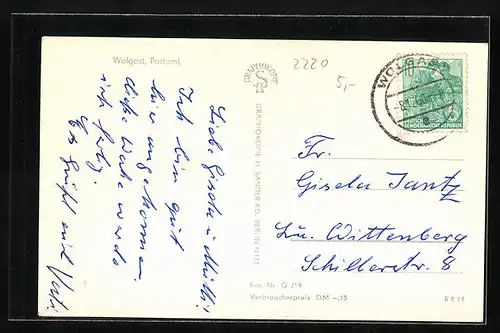 Wolgast, Postamt
2220
5,-
GRAPHOKOPIE
WOLGAST
DEMOKRATISCHE REPUBLIK
Liebe Gisela u. Mutti!
Ich bin gut
hier angekommen.
diese Woche werde
ich
Es grüßt euch Vati.
GRAPHOKOPIE H. SANDER KG. BERLIN
Fr.
Gisela Jantz
Lu. Wittenberg
Schillerstr. 8
Best. Nr. G 719
Verbraucherpreis DM -,15